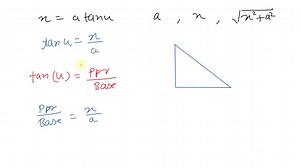 x = a tanu        a , x , √x²+a²
tanu = x/a
tan(u) = Ppr/Base
Ppr/Base = x/a